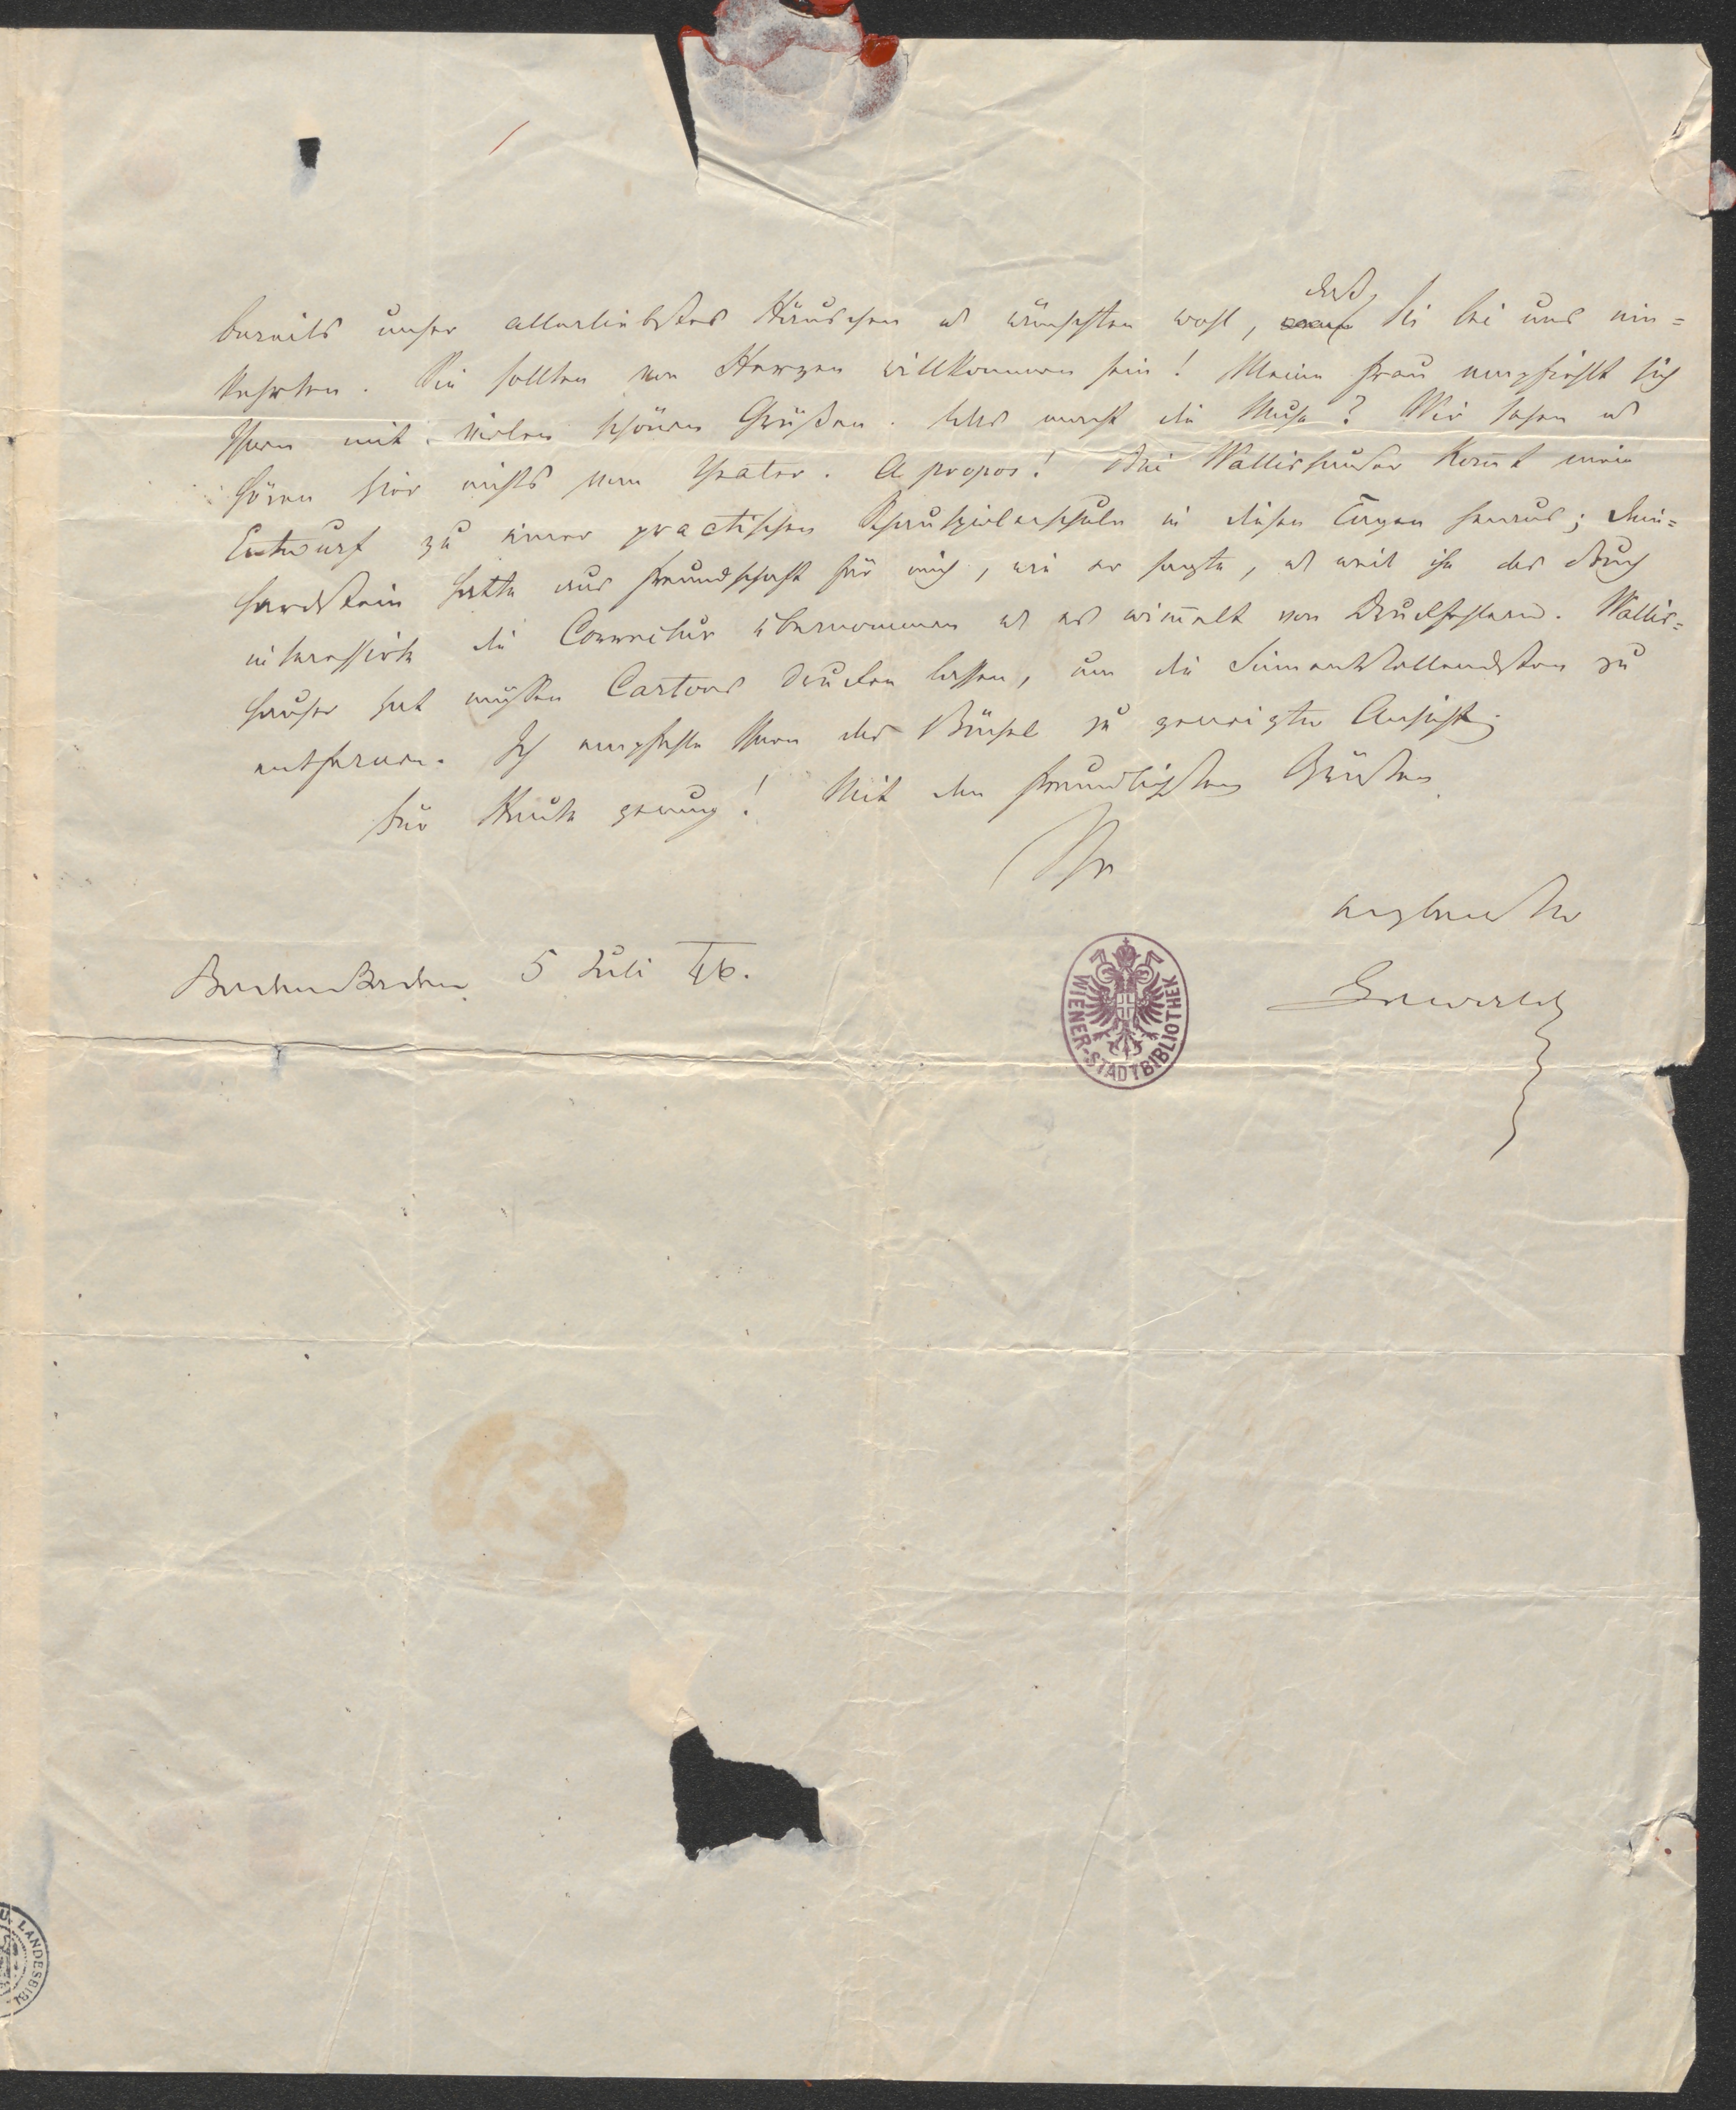 bereits unser allerliebstes Häuschen u wünschten wohl, daß Sie bei uns ein=
kehrten. Sie sollten von Herzen willkommen sein! Meine Frau empfiehlt sich
Ihnen mit vielen schönen Grüßen. Was macht die Muse? Wir sehen u
hören hier nichts vom Theater. A propos! Bei Wallishauser kom̄t mein
Entwurf zu einer practischen Schauspielerschule in diesen Tagen heraus; Dein=
hardstein hatte aus Freundschaft für mich, wie er sagte, u weil ihn das Buch
interessirte die Correctur übernommen u es wim̄elt von Druckfehlern. Wallis=
hauser hat müssen Cartons drucken lassen, um die Sinnentstellendsten zu
entfernen. Ich empfehle Ihnen das Büchel zu geneigter Ansicht.
Für Heute genug! Mit den freundlichsten Grüßen
Ihr
ergebenster
Baden Baden 5 Juli 46.
Lewald
WIENER-STADTBIBLIOTHEK
U. LANDESBIBL